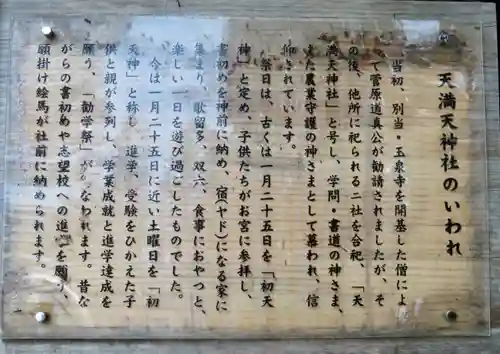 天満天神社のいわれ
当初、別当・玉泉寺を開基した僧によ
って菅原道真公が勧請されましたが、そ
の後、他所に祀られる二社を合祀、「天
満天神社」と号し、学問・書道の神さま、
また農業守護の神さまとして慕われ、信
仰されています。
祭日は、古くは一月二十五日を「初天
神」と定め、子供たちがお宮に参拝し、
書初めを神前に納め、宿(ヤド)になる家に
集まり、歌留多、双六、食事におやつと、
楽しい一日を遊び過ごしたものでした。
今は一月二十五日に近い土曜日を「初
天神」と称し、進学、受験をひかえた子
供と親が参列し、学業成就と進学達成を
願う、「勧学祭」が なわれます。昔な
がらの書初めや志望校への進 を願う、
願掛け絵馬が社前に納められます。